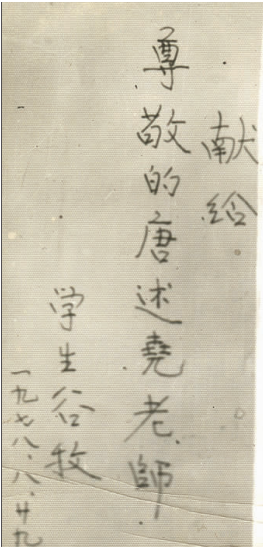 献给
尊敬的唐述尧老師
学生谷牧
一九七八、八、廿九